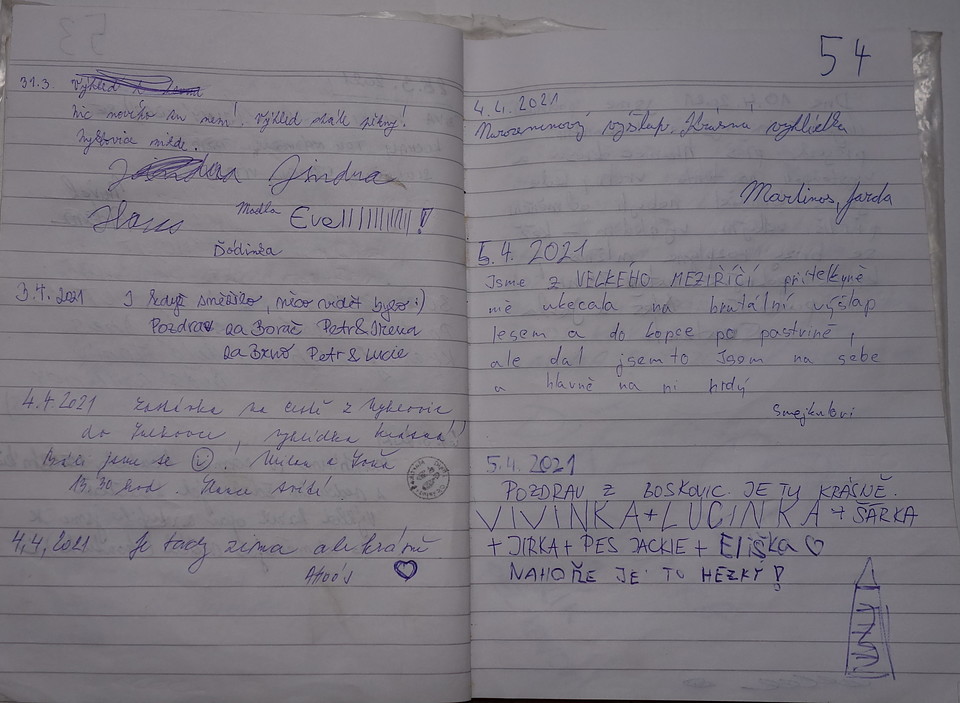 31.3. Výhled
Nic nového tu není! Výhled stále pěkný!
nikde.
Jindra
Hans Madla Eva!!!!!!!!!!!
Dádinka
3.4.2021 I když sněžilo, něco vidět bylo :)
Pozdrav za Borač Petr & Irena
za Brno Petr & Lucie
4.4.2021 Zastávka na cestě z
do , vyhlídka krásná!
Báli jsme se ! Milan a
13,30 hod. Slunce svítí
4,4,2021 Je tady zima ale krásně
Ahoj
54
4.4.2021
Narozeninový výšlap. Krásná vyhlídka
Martinos, Jarda
5.4.2021
Jsme z VELKÉHO MEZIŘÍČÍ přítelkyně
mě ukecala na brutální výšlap
lesem a do kopce po pastvině,
ale dal jsem to Jsem na sebe
a hlavně na ni hrdý
Smejkalovi
5.4.2021
POZDRAV Z BOSKOVIC. JE TU KRÁSNĚ.
VIVINKA + LUCINKA + ŠÁRKA
+ JIRKA + PES JACKIE + Eliška
NAHOŘE JE TU HEZKY!